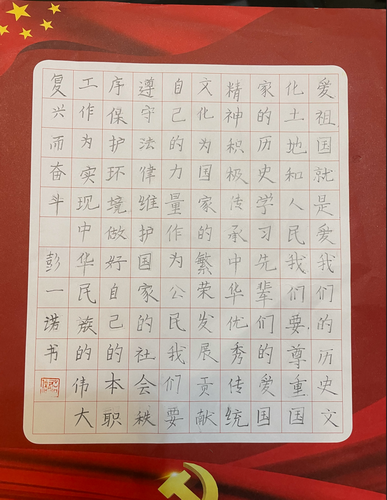 爱祖国就是爱我们的历史文
化土地和人民我们要尊重国
家的历史学习先辈们的爱国
精神积极传承中华优秀传统
文化为国家的繁荣发展贡献
自己的力量作为公民我们要
遵守法律维护国家的社会秩
序保护环境做好自己的本职
工作为实现中华民族的伟大
复兴而奋斗 彭一诺书